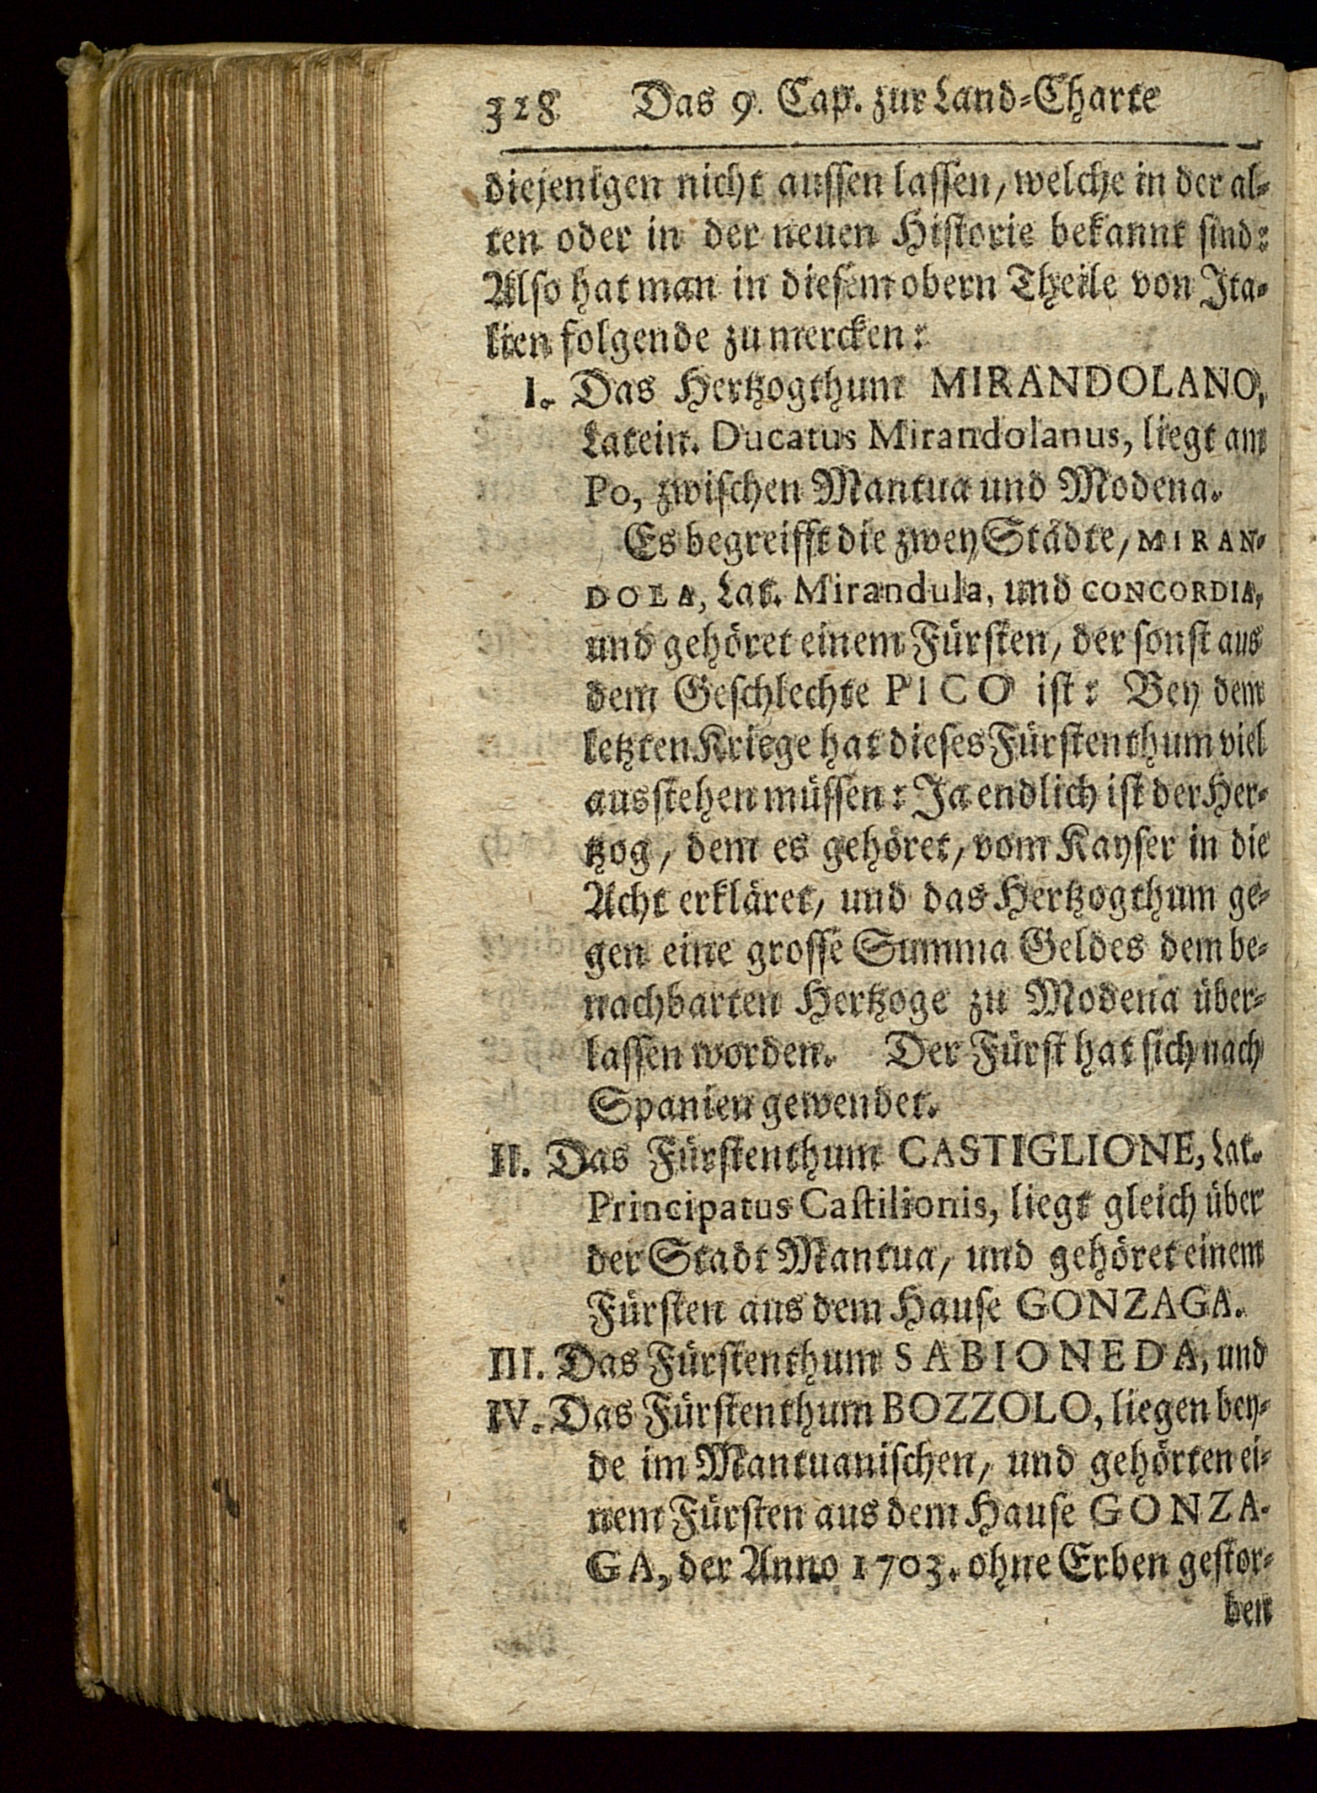 318 Das 9. Cap. zur Land-Charte
diejenigen nicht aussen lassen, welche in der al-
ten oder in der neuen Historie bekannt sind:
Also hat man in diesem obern Theile von Ita-
lien folgende zu mercken:
I. Das Hertzogthum MIRANDOLANO,
Latein. Ducatus Mirandolanus, liegt am
Po, zwischen Mantua und Modena.
Es begreifft die zwey Städte, MIRAN-
DOLA, Lat. Mirandula, und CONCORDIA,
und gehöret einem Fürsten, der sonst aus
dem Geschlechte PICO ist: Bey dem
letzten Kriege hat dieses Fürstenthum viel
ausstehen müssen: Ja endlich ist der Her-
tzog, dem es gehöret, vom Kayser in die
Acht erkläret, und das Hertzogthum ge-
gen eine grosse Summa Geldes dem be-
nachbarten Hertzoge zu Modena über-
lassen worden. Der Fürst hat sich nach
Spanien gewendet.
II. Das Fürstenthum CASTIGLIONE, Lat.
Principatus Castilionis, liegt gleich über
der Stadt Mantua, und gehöret einem
Fürsten aus dem Hause GONZAGA.
III. Das Fürstenthum SABIONEDA, und
IV. Das Fürstenthum BOZZOLO, liegen bey-
de im Mantuanischen, und gehörten ei-
nem Fürsten aus dem Hause GONZA-
GA, der Anno 1703. ohne Erben gestor-
ben